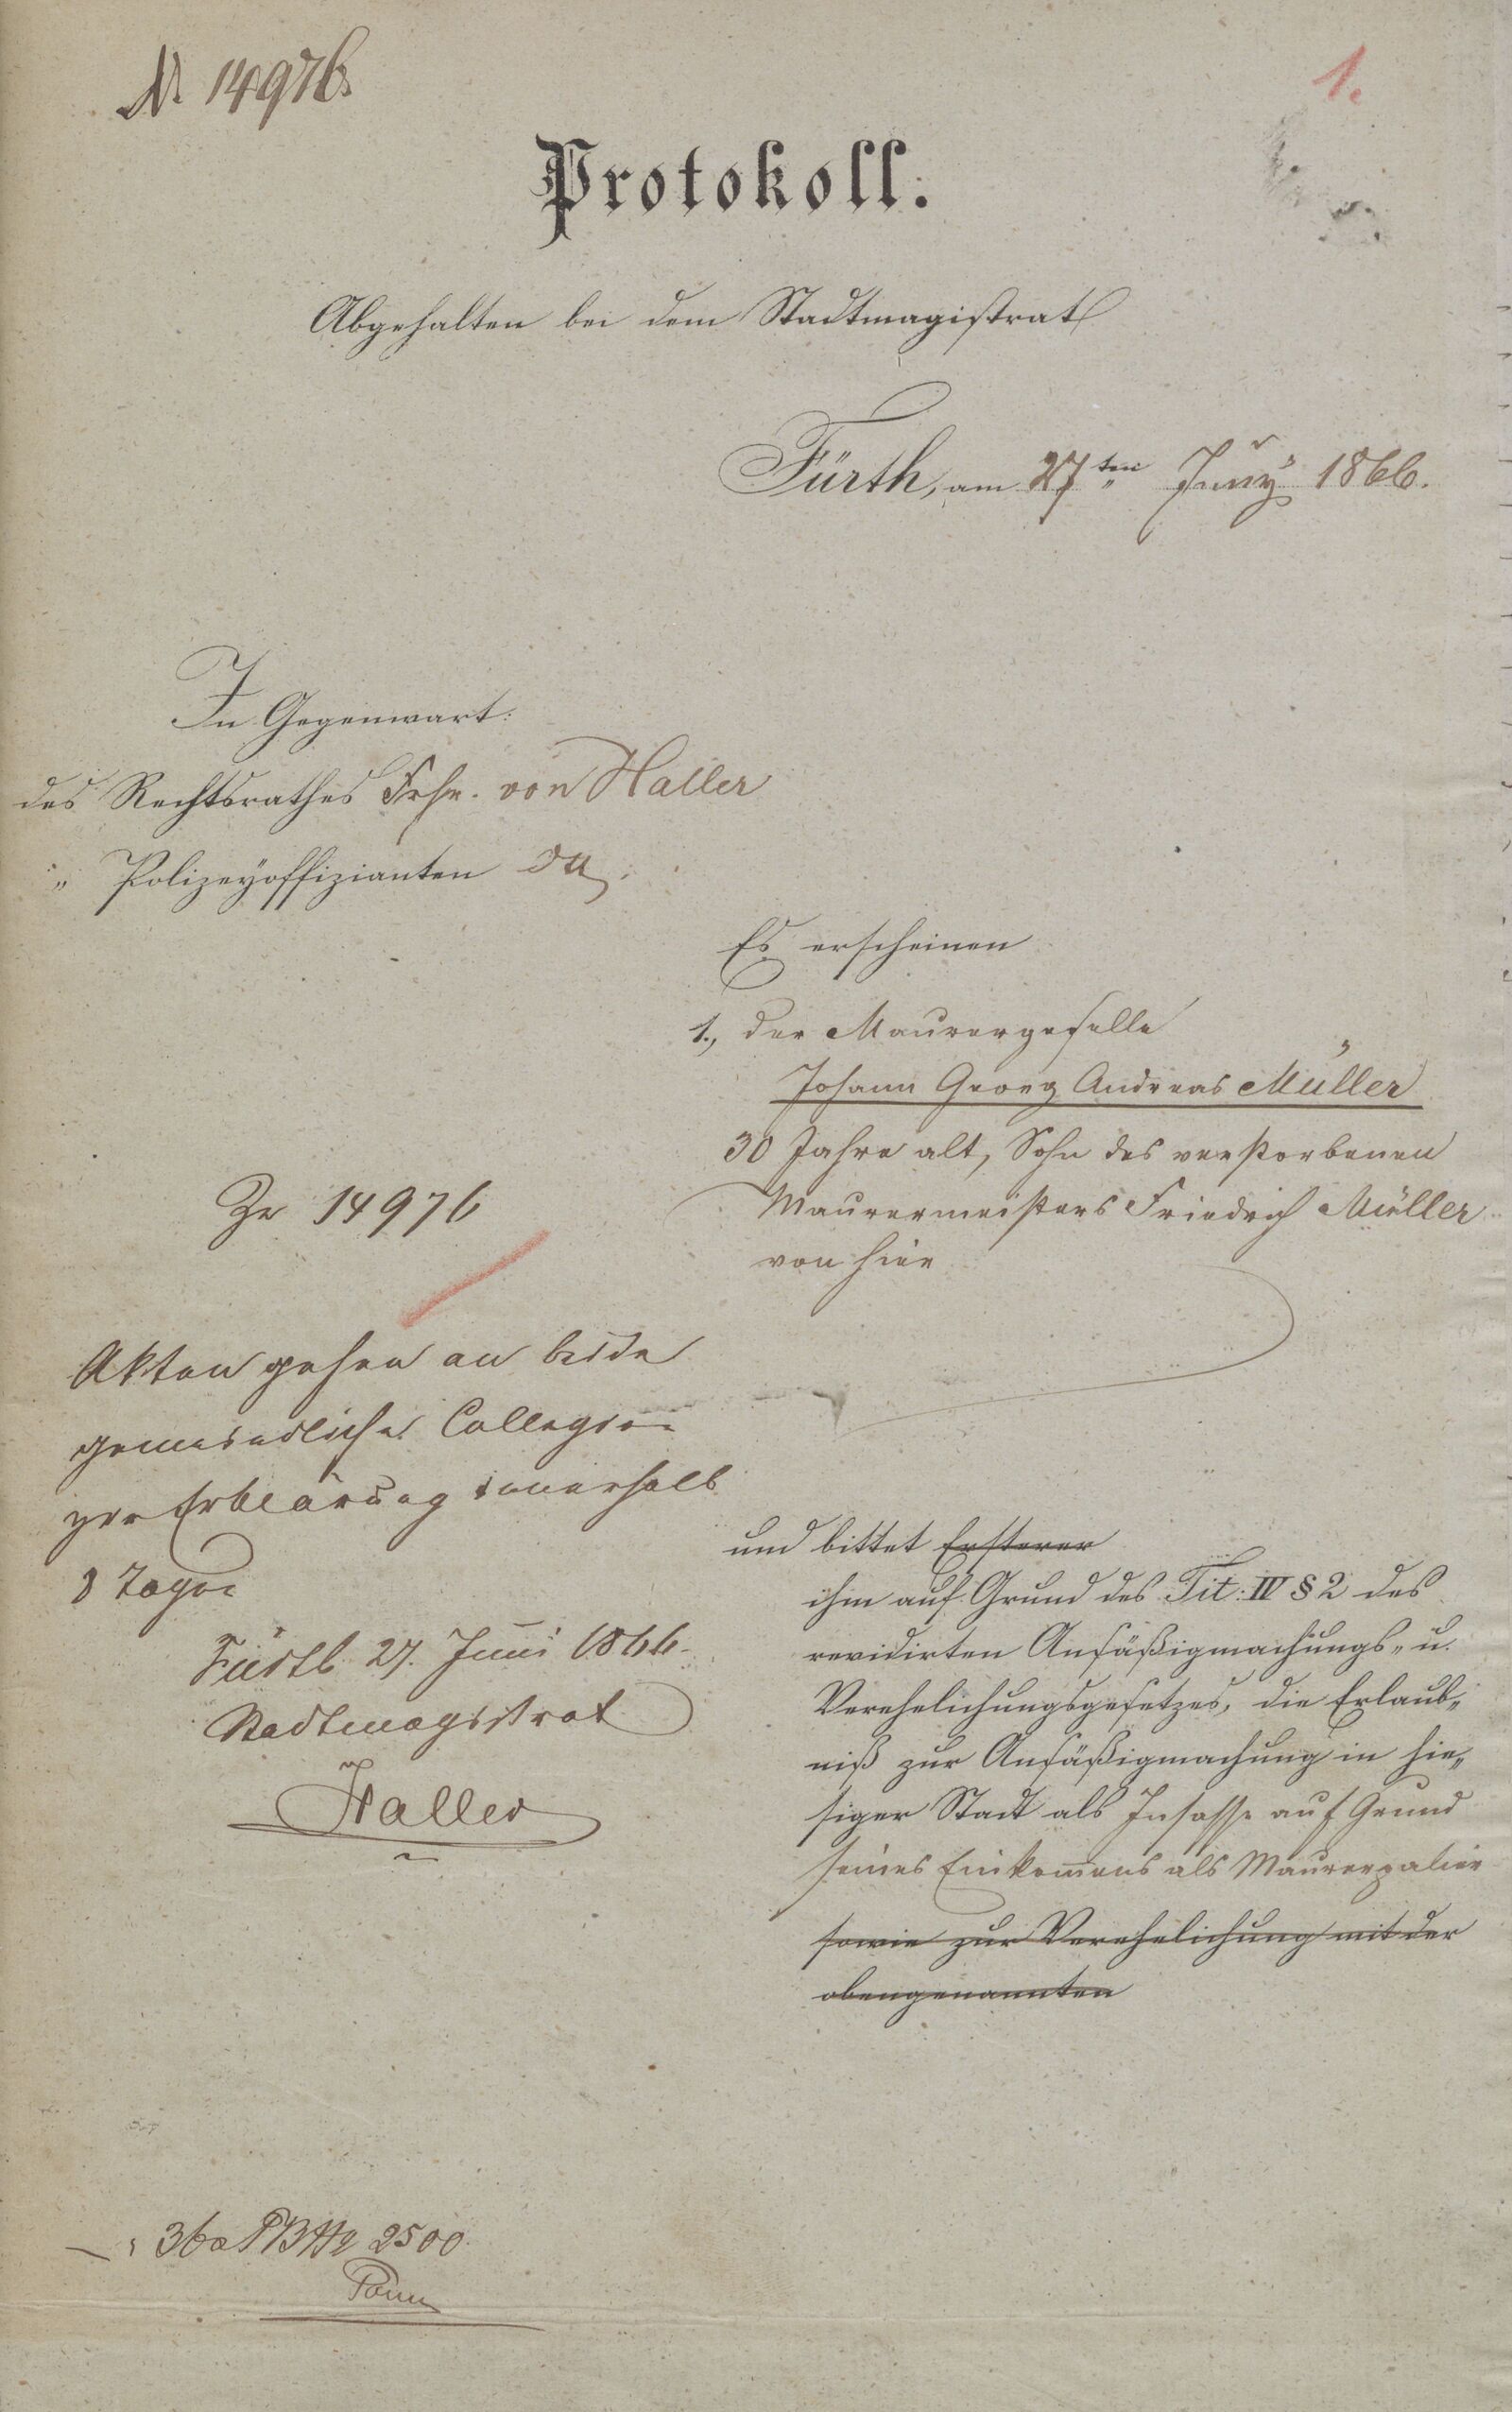 № 14976.
1.
Protokoll.
Abgehalten bei dem Stadtmagistrat
Fürth, am 27ten Juny 1866.
In Gegenwart:
des Rechtsrathes Frhr. von Haller
" Polizeyoffizianten
Es erscheinen
1., der Maurergeselle
Johann Georg Andreas Müller
30 Jahre alt, Sohn des verstorbenen
Maurermeisters Friedrich Müller
von hier
Zu 14976
Akten gehen an beide
gemeindliche Collegien
zur Erklärung innerhalb
8 Tagen
Fürth 27. Juni 1866.
Stadtmagistrat
Haller
und bittet Ersterer
ihm auf Grund des Tit: IV § 2 des
revidirten Ansäßigmachungs- u.
Verehelichungsgesetzes, die Erlaub„
niß zur Ansäßigmachung in hie„
siger Stadt als Insasse auf Grund
seines Einkom̅ens als Maurerpalier
sowie zur Verehelichung mit der
obengenannten
2500